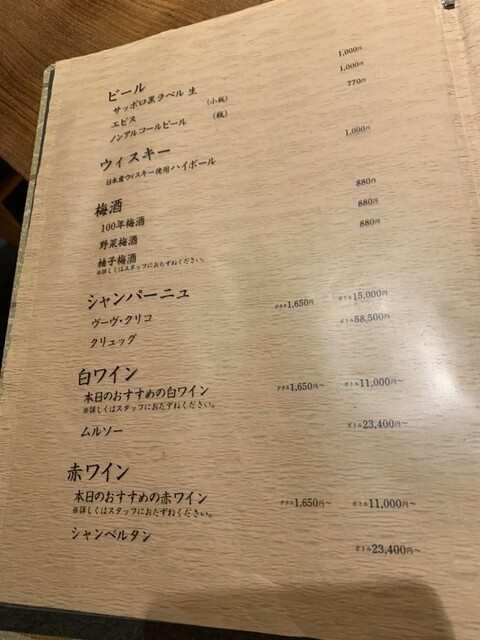 ビール
サッポロ黒ラベル 生 1,000円
エビス (小瓶) 1,000円
ノンアルコールビール (瓶) 770円
ウィスキー
日本産ウィスキー使用ハイボール 1,000円
梅酒
100年梅酒 880円
野菜梅酒 880円
柚子梅酒 880円
※詳しくはスタッフにおたずねください。
シャンパーニュ
ヴーヴ・クリコ グラス1,650円 ボトル15,000円
クリュッグ ボトル58,500円
白ワイン
本日のおすすめの白ワイン グラス1,650円～ ボトル11,000円～
※詳しくはスタッフにおたずねください。
ムルソー ボトル23,400円～
赤ワイン
本日のおすすめの赤ワイン グラス1,650円～ ボトル11,000円～
※詳しくはスタッフにおたずねください。
シャンベルタン ボトル23,400円～